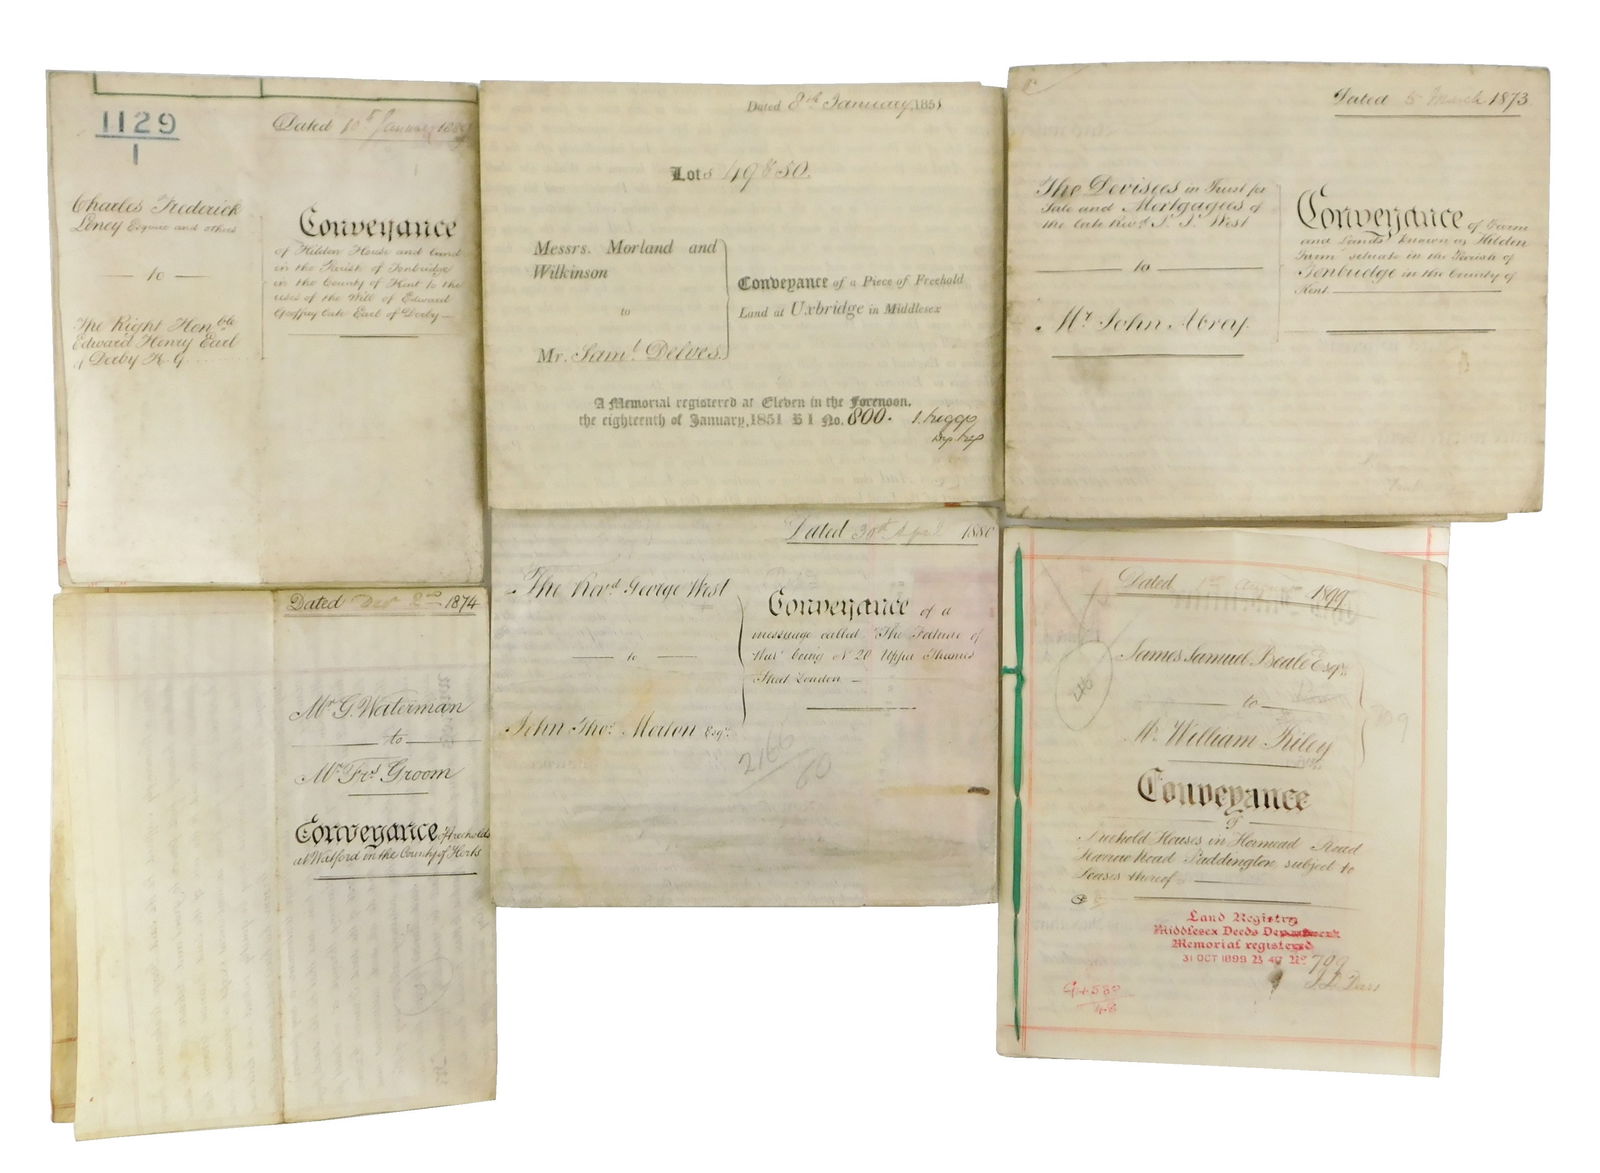 1129
1
Dated 10th January
Charles Frederick
Loney Esquire and others
to
The Right Honble
Edward Henry Earl
of Derby K. G.
Conveyance
of Hilden House and Land
in the Parish of Tonbridge
in the County of Kent to the
uses of the Will of Edward
Geoffrey late Earl of Derby
Dated 8th January, 1851
Lots 49 & 50.
Messrs. Morland and
Wilkinson
to
Mr. Saml Delves.
Conveyance of a Piece of Freehold
Land at Uxbridge in Middlesex
A Memorial registered at Eleven in the Forenoon.
the eighteenth of January, 1851 B 1 No. 800.
Dep. Reg
Dated 5 March 1873.
The Devisees in Trust for
Sale and Mortgagees of
the late Revd. J. J. West
to
Mr John Abrey.
Conveyance of Farm
and Lands known as Hilden
Farm situate in the Parish of
Tonbridge in the County of
Kent
Dated Decr 2nd 1874
Mr G. Waterman
to
Mr Frd Groom
Conveyance of Freeholds
at Watford in the County of Herts
Dated 30th April 1880
The Revd George West
to
John Thos Merton Esqr.
Conveyance of a
messuage called "The Fortune of
War" being No 20 Upper Thames
Street London
2166
60
Dated August 1899
216
James Samuel Beale Esqre
to
Mr William Kiley
709
Conveyance
of
Freehold Houses in Hormead Road
Harrow Road Paddington subject to
Leases thereof
Land Registry
Middlesex Deeds Department
Memorial registered
31 OCT 1899 B 47 No 709